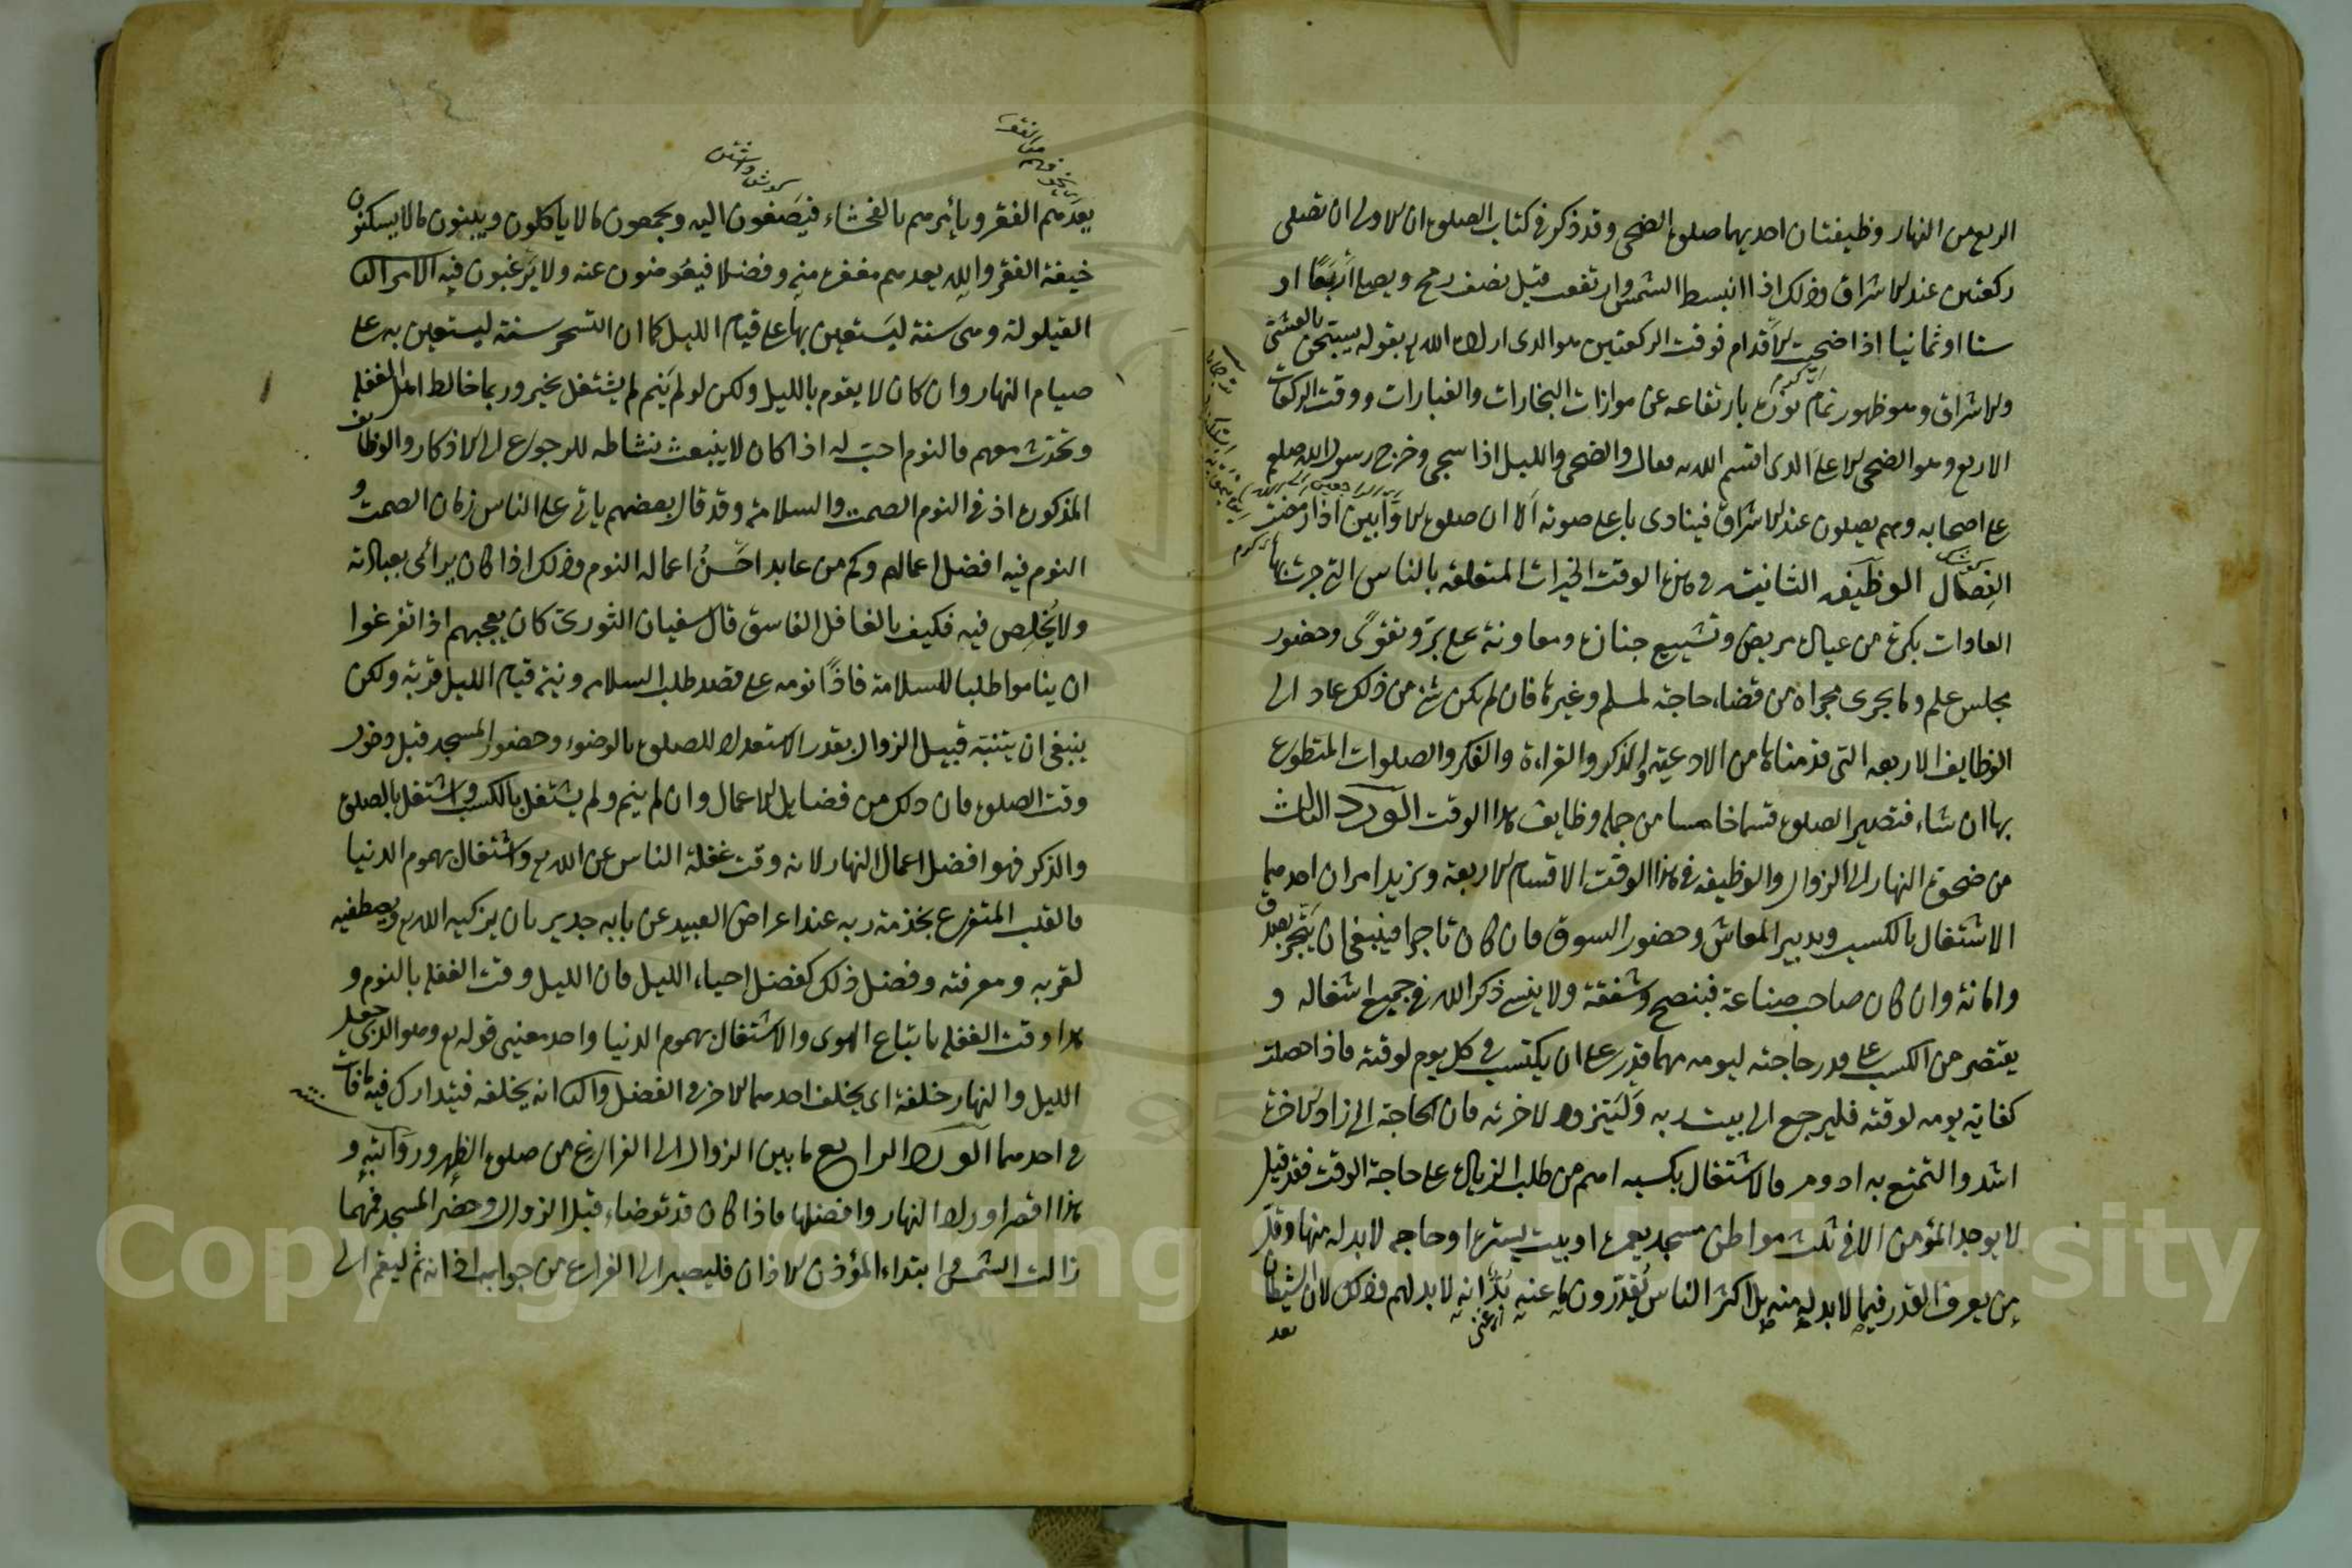 الربع من النهار وظيفتان احديهما صلوة الضحى وقد ذكر فى كتاب الصلوة ان الاولى ان تصلى
ركعتين عند الاشراق وذلك اذا انبسط الشمس وارتفعت قبل نصف رمح ويصلى أربعًا او
ستا او ثمانيا اذا ضحيت الاقدام فوقت الركعتين هو الذى اراد الله بقوله يسبحن بالعشى
والاشراق وهو ظهور تمام نوره بارتفاعه عن موازات البخارات والغبارات ووقت الركعات
الاربع وهو الضحى الاعلى الذى اقسم الله به فقال والضحى والليل اذا سجى وخرج رسول الله صلعم
على اصحابه وهم يصلون عند الاشراق فينادى باعلى صوته ألا ان صلوة الاوابين اذا رمضت
الفِصَال الوظيفه الثانية فى هذه الوقت الخيرات المتعلقه بالناس التى جرت بها
العادات بكرة من عيادة مريض وتشييع جنازة ومعاونة على بر وتقوى وحضور
مجلس علم وما يجرى مجراه من قضاء حاجة لمسلم وغيرها فان لم يكن شئ من ذلك عاد الى
الوظايف الاربعه التى قدمناها من الادعية والذكر والقراءة والفكر والصلوات المتطوع
بها ان شاء فتصير الصلوة قسما خامسا من جمله وظايف هذا الوقت الورد الثالث
من ضحوة النهار الى الزوال والوظيفه فى هذا الوقت الاقسام الاربعة ويزيد امران احدهما
الاشتغال بالكسب وتدبير المعاش وحضور السوق فان كان تاجرا فينبغى ان يتجر بصدق
وامانة وان كان صاحب صناعة فبنصح وشفقة ولا ينسى ذكر الله فى جميع اشغاله و
يقتصر من الكسب على قدر حاجته ليومه مهما قدر على ان يكتسب فى كل يوم لوقته فاذا حصلت
كفاية يومه لوقته فليرجع الى بيت ربه وليتزود لاخرته فان الحاجة الى زاد الاخرة
اشد والتمتع به ادوم فالاشتغال بكسبه اهم من طلب الزيادة على حاجة الوقت فقد قيل
لا يوجد المؤمن الا فى ثلث مواطن مسجد يعمره او بيت يستره او حاجه لا بد له منها وقلّ
من يعرف القدر فيما لا بد له منه بل اكثر الناس يُقدّرون ما عنه بُدٌّ انه لا بد لهم وذلك لان الشيطان
يعد
يعدهم الفقر ويأمرهم بالفحشاء فيَصغون اليه ويجمعون ما لا ياكلون ويبنون ما لا يسكنون
خيفة الفقر والله يعدهم مغفرة منه وفضلا فيعرضون عنه ولا يَرغبون فيه الامر الثانى
القيلولة وهى سنة ليَستعين بها على قيام الليل كما ان التسحر سنة ليستعين به على
صيام النهار وان كان لا يقوم بالليل ولكن لو لم يَنم لم يشتغل بخير وربما خالط اهل الغفله
وتحدث معهم فالنوم احبّ له اذا كان لا ينبعث نشاطه للرجوع الى الاذكار والوظائف
المذكورة اذ فى النوم الصمت والسلامة وقد قال بعضهم ياتى على الناس زمان الصمت و
النوم فيه افضل اعمالهم وكم من عابد احسنُ اعماله النوم وذلك اذا كان يرائى بعبادته
ولا يُخلِص فيه فكيف بالغافل الفاسق قال سفيان الثورى كان يعجبهم اذا تفرغوا
ان يناموا طلبا للسلامة فاذًا نومه على قصد طلب السلامه ونية قيام الليل قربة ولكن
ينبغى ان يتنبه قبيل الزوال بقدر الاستعداد للصلوة بالوضوء وحضور المسجد قبل دخول
وقت الصلوة فان ذلك من فضايل الاعمال وان لم ينم ولم يشتغل بالكسب واشتغل بالصلوة
والذكر فهو افضل اعمال النهار لانه وقت غفلة الناس عن الله واشتغال بهموم الدنيا
فالقلب المتفرغ بخدمة ربه عند اعراض العبيد عن بابه جدير بان يزكيه الله ويصطفيه
لقربه ومعرفته وفضل ذلك كفضل احياء الليل فان الليل وقت الغفله بالنوم و
هذا وقت الغفله باتباع الهوى والاشتغال بهموم الدنيا واحد معنيى قوله وهو الذى جعل
الليل والنهار خلفة اى يخلف احدهما الاخر فى الفضل والثانى انه يخلفه فيتدارك فيه ما فات
فى احدهما الورد الرابع ما بين الزوال الى الفراغ من صلوة الظهر ورواتبه و
هذا اقصر اوراد النهار وافضلها فاذا كان قد توضاء قبل الزوال وحضر المسجد فمهما
زالت الشمس وابتداء المؤذن الاذان فليصبر الى الفراغ من جواب اذانه ثم ليقم الى